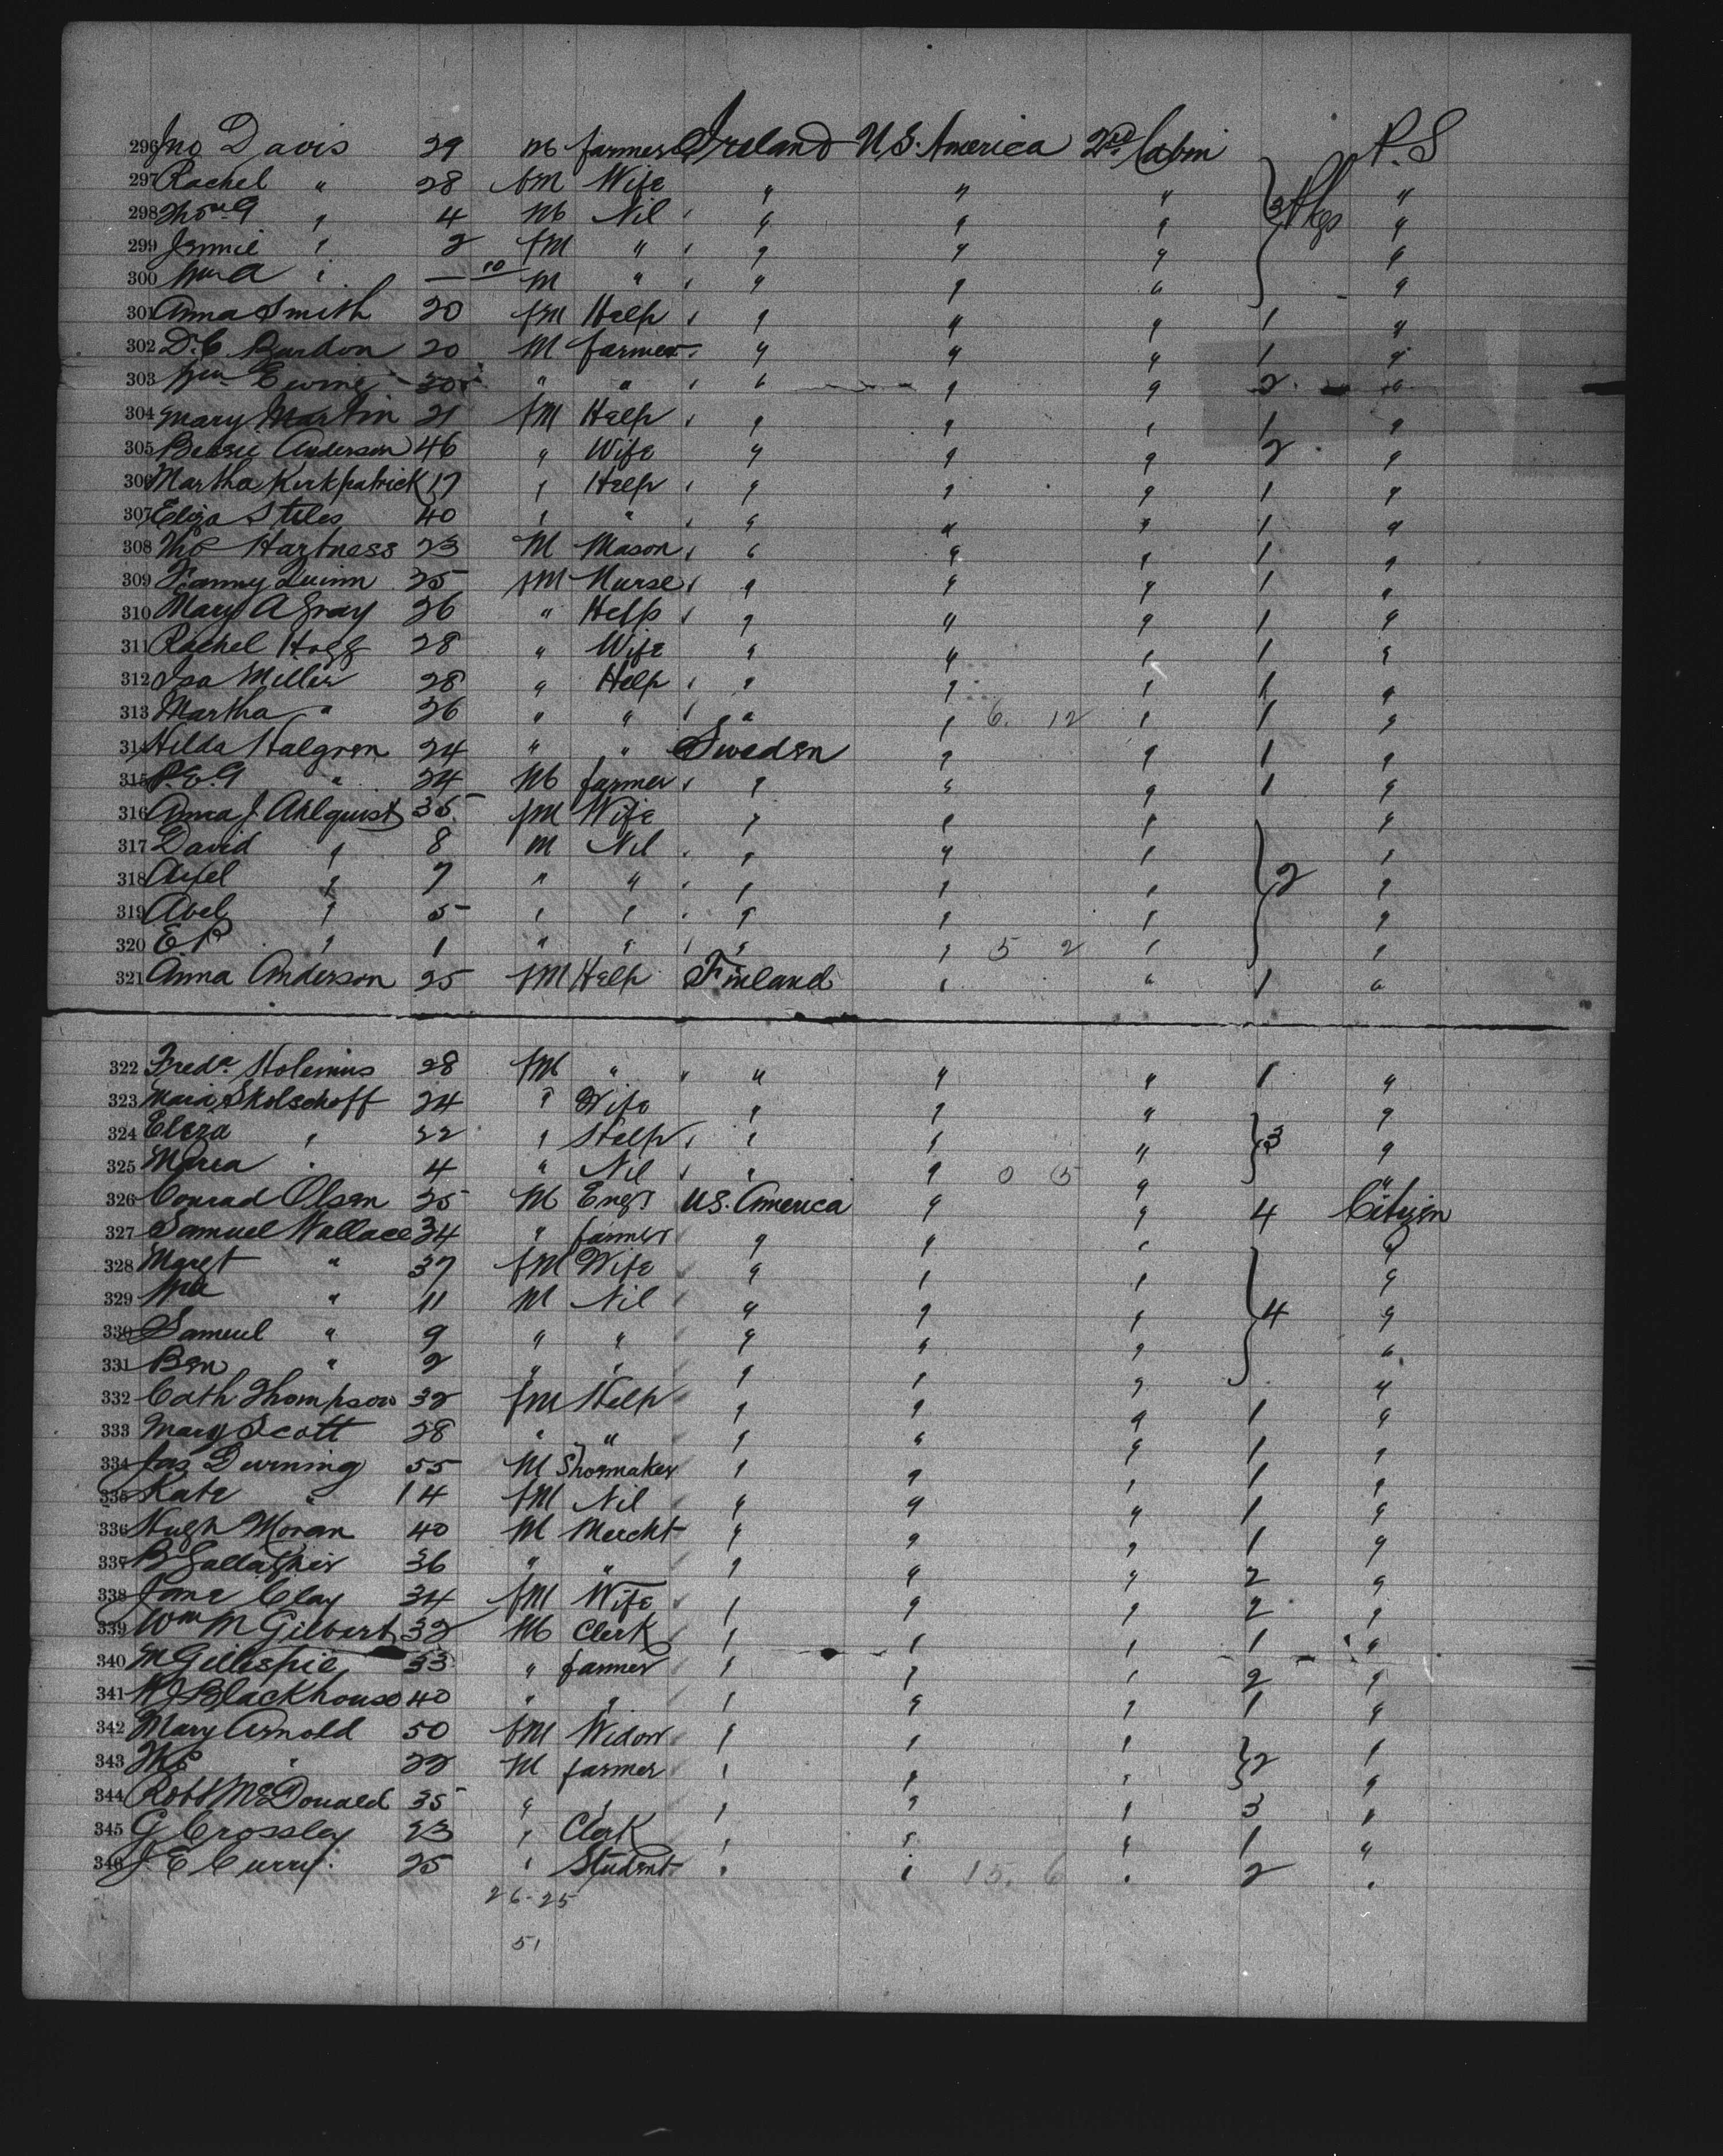 296 Jno Davis 29 M farmer Ireland U.S. America 2nd Cabin P.S
297 Rachel " 28 fM Wife " " " 3 Pkgs "
298 Thos G " 4 M Nil " " " "
299 Jennie " 2 fM " " " " "
300 Wm A " — 10 M " " " " "
301 Anna Smith 20 fM Help " " " 1 "
302 D.C. Bardon 20 M farmer " " " 1 "
303 Wm Ewing 30 " " " " " 2 "
304 Mary Martin 21 fM Help " " " 1 "
305 Bessie Anderson 46 " Wife " " " 2 "
306 Martha Kirkpatrick 17 " Help " " " 1 "
307 Eliza Stiles 40 " " " " " 1 "
308 Thos Hartness 23 M Mason " " " 1 "
309 Fanny Quinn 25 fM Nurse " " " 1 "
310 Mary A Gray 26 " Help " " " 1 "
311 Rachel Hogg 28 " Wife " " " 1 "
312 Isa Miller 28 " Help " " " 1 "
313 Martha " 26 " " " " 6. 12 " 1 "
314 Hilda Halgren 24 " " Sweden " " 1 "
315 P.E.G " 24 M farmer " " " 1 "
316 Anna J. Ahlquist 35 fM Wife " " " "
317 David " 8 M Nil " " " "
318 Axel " 7 " " " " " 2 "
319 Abel " 5 " " " " " "
320 E P " 1 " " " " 5 2 " "
321 Anna Anderson 25 fM Help Finland " " 1 "
322 Freda Holenius 28 fM " " " " 1 "
323 Maia Skolschoff 24 " Wife " " " "
324 Eliza " 22 " Help " " " 3 "
325 Maria " 4 " Nil " " 0 5 " "
326 Conrad Olsen 25 M Engr U.S. America " " 4 Citizen
327 Samuel Wallace 34 " farmer " " " "
328 Margt " 37 fM Wife " " " "
329 Wm " 11 M Nil " " " 4 "
330 Samuel " 9 " " " " " "
331 Ben " 2 " " " " " "
332 Cath Thompson 32 fM Help " " " 1 "
333 Mary Scott 28 " " " " " 1 "
334 Jas Durning 55 M Shoemaker " " " 1 "
335 Kate " 14 fM Nil " " " 1 "
336 Hugh Moran 40 M Mercht " " " 1 "
337 B Gallagher 36 " " " " " 2 "
338 Jane Clay 34 fM Wife " " " 2 "
339 Wm M Gilbert 32 M Clerk " " " 1 "
340 M Gillespie 33 " farmer " " " 2 "
341 W J Blackhouse 40 " " " " " 1 "
342 Mary Arnold 50 fM Widow " " " "
343 Thos " 22 M farmer " " " 2 "
344 Robt McDonald 35 " " " " " 3 "
345 G Crossley 23 " Clerk " " " 1 "
346 J E Curry 25 " Student " " 13. 6 " 2 "
26-25
51